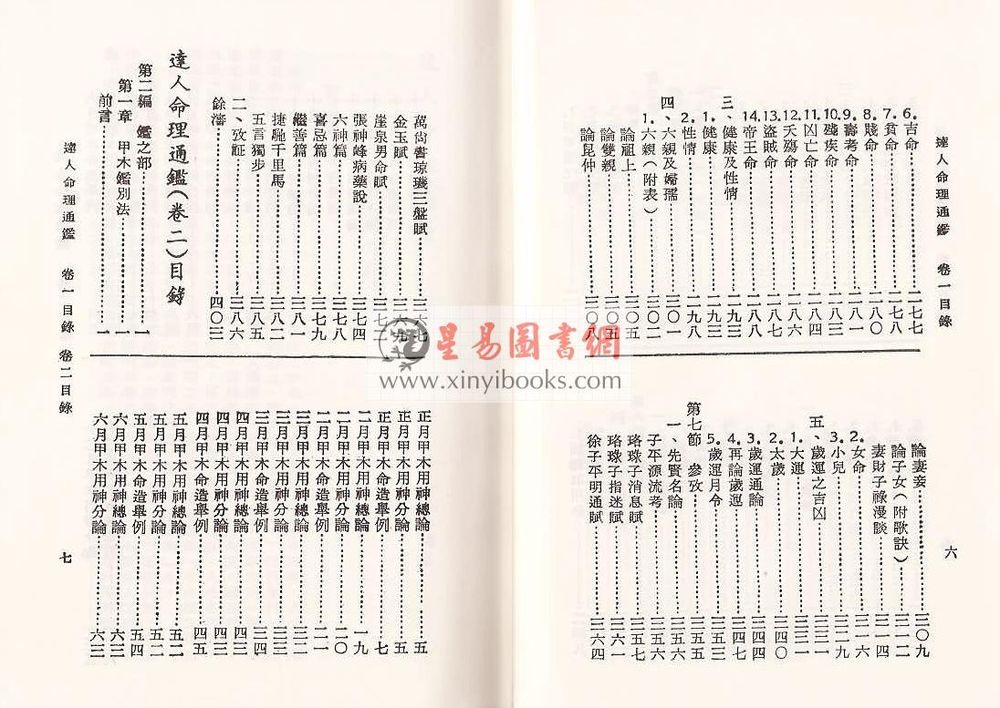 達人命理通鑑 卷一目錄
六
6.吉命……二七七
7.貧命……二七八
8.賤命……二八〇
9.壽考命……二八一
10.殘疾命……二八三
11.凶亡命……二八四
12.夭殤命……二八六
13.盜賊命……二八七
14.帝王命……二八八
三、健康及性情……
1.健康……
2.性情……
四、六親及婦孺……
1.六親(附表)……三〇二
論祖上……
論雙親……三〇五
論昆仲……三〇八
論妻妾……三〇九
論子女(附歌訣)……三一二
妻財子祿漫談……三一四
2.女命……三一七
3.小兒……三一九
五、歲運之吉凶……
1.大運……
2.太歲……
3.歲運通論……三四四
4.再論歲運……三四七
5.歲運月令……三五四
第七節 參攷……
一、先賢名論……三五六
子平源流考……三五六
珞琭子消息賦……三五七
珞琭子指迷賦……三六一
徐子平明通賦……三六四
萬尚書琼璣三盤賦……三六七
金玉賦……三六九
崖泉男命賦……三七二
張神峰病藥說……三七四
六神篇……三七八
喜忌篇……三七九
繼善篇……三八一
捷馳千里馬……三八二
五言獨步……三八五
二、攷証……三八六
餘瀋……四〇三
達人命理通鑑(卷二)目錄
第二編 鑑之部……一
第一章 甲木鑑別法……一
前言……一
正月甲木用神總論……五
正月甲木用神分論……五
正月甲木命造舉例……七
二月甲木用神總論……一九
二月甲木用神分論……二〇
二月甲木命造舉例……二一
三月甲木用神總論……三二
三月甲木用神分論……三三
三月甲木命造舉例……三四
四月甲木用神總論……四三
四月甲木用神分論……四三
四月甲木命造舉例……四五
五月甲木用神總論……五二
五月甲木用神分論……五二
五月甲木命造舉例……五四
六月甲木用神總論……六三
六月甲木用神分論……六三
達人命理通鑑 卷一目錄 卷二目錄
七
星易圖書網
www.xinyibooks.com